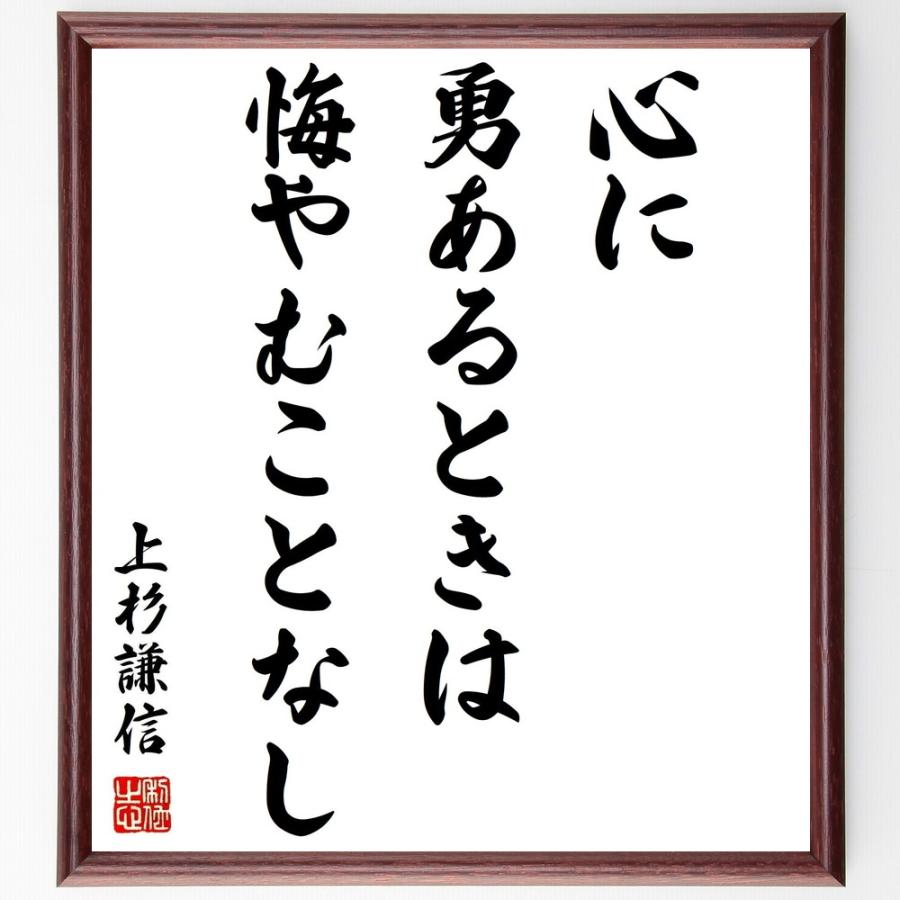 心に
勇あるときは
悔やむことなし
上杉謙信